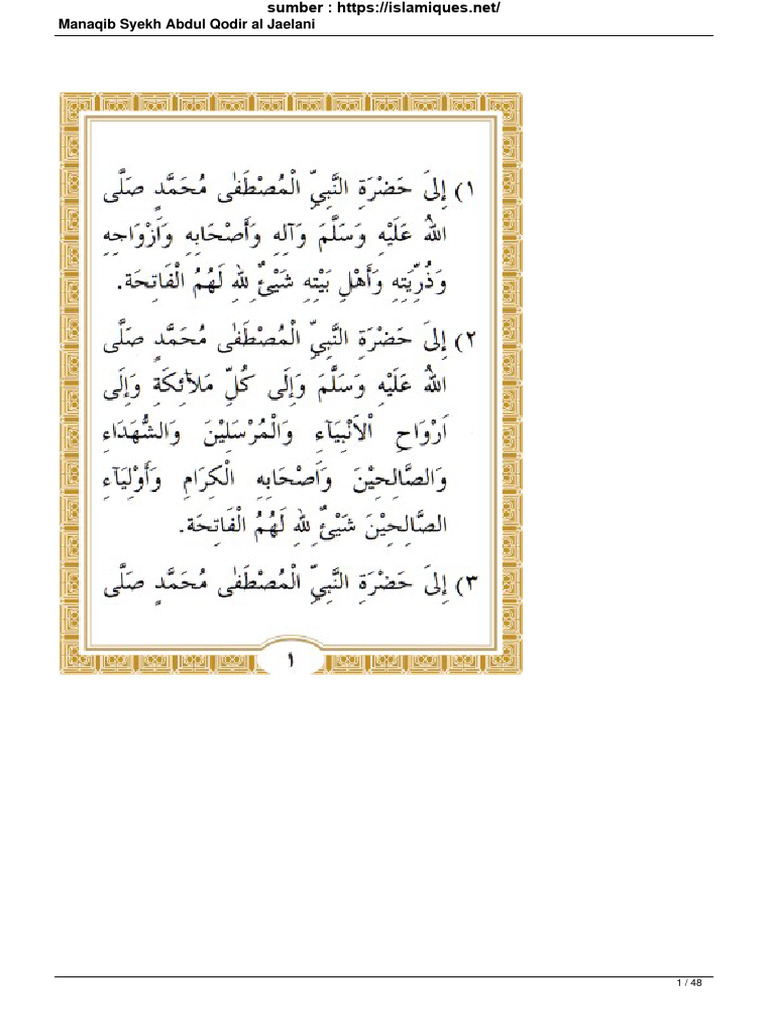 sumber : https://islamiques.net/
Manaqib Syekh Abdul Qodir al Jaelani
١) اِلَى حَضْرَةِ النَّبِيِّ الْمُصْطَفٰى مُحَمَّدٍ صَلَّى
اللهُ عَلَيْهِ وَسَلَّمَ وَآلِهِ وَأَصْحَابِهِ وَأَزْوَاجِهِ
وَذُرِّيَتِهِ وَأَهْلِ بَيْتِهِ شَيْئٌ لِلهِ لَهُمُ الْفَاتِحَة.
٢) اِلَى حَضْرَةِ النَّبِيِّ الْمُصْطَفٰى مُحَمَّدٍ صَلَّى
اللهُ عَلَيْهِ وَسَلَّمَ وَاِلَى كُلِّ مَلَآئِكَةِ وَاِلَى
اَرْوَاحِ الْاَنْبِيَآءِ وَالْمُرْسَلِيْنَ وَالشُّهَدَاءِ
وَالصَّالِحِيْنَ وَاَصْحَابِهِ الْكِرَامِ وَأَوْلِيَآءِ
الصَّالِحِيْنَ شَيْئٌ لِلهِ لَهُمُ الْفَاتِحَة.
٣) اِلَى حَضْرَةِ النَّبِيِّ الْمُصْطَفٰى مُحَمَّدٍ صَلَّى
١
1 / 48